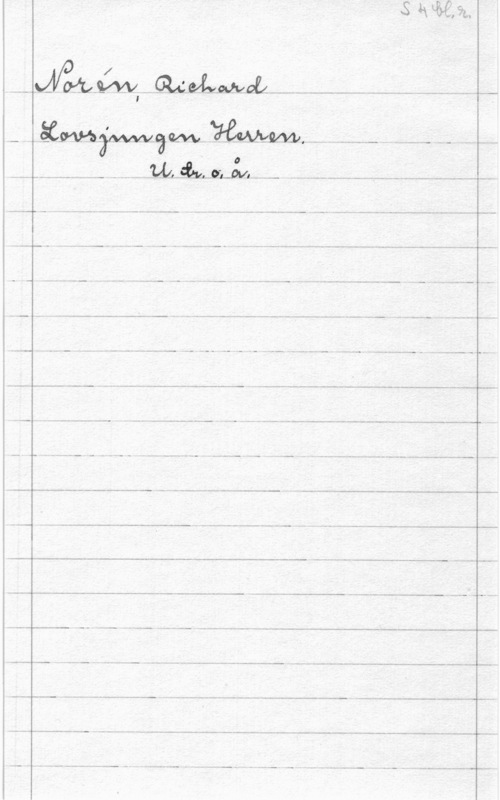 S 4 bl. r.
Norén, Richard
Lovsjungen Herren.
U. tr. o. å.